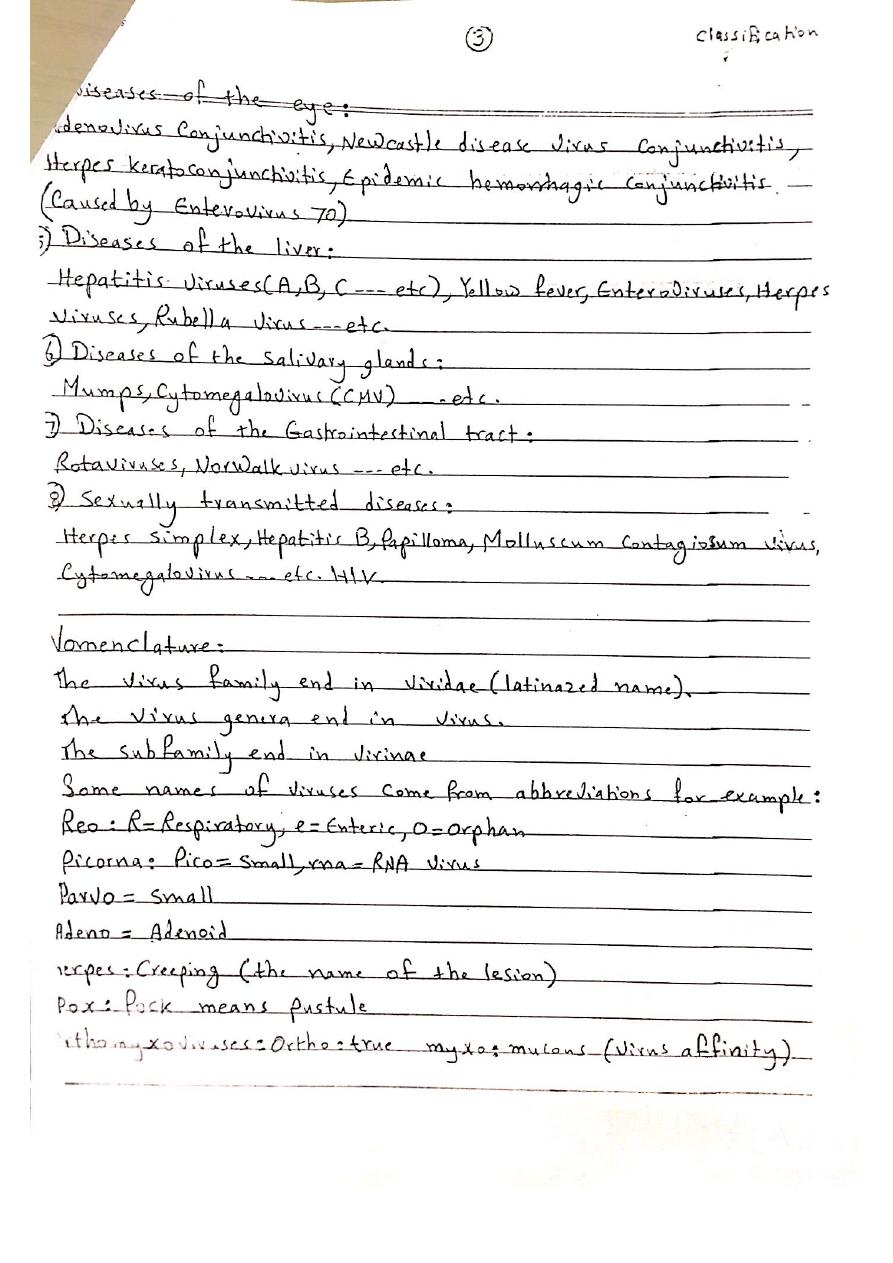 ③
Classification
iseases of the eye:
denovirus Conjunctivitis, Newcastle disease virus Conjunctivitis,
Herpes keratoconjunctivitis, Epidemic hemorrhagic Conjunctivitis
(Caused by Enterovirus 70)
5) Diseases of the liver:
Hepatitis viruses (A,B,C --- etc), Yellow fever, Enteroviruses, Herpes
viruses, Rubella virus --- etc.
6) Diseases of the salivary glands:
Mumps, Cytomegalovirus (CMV) --- etc.
7) Diseases of the Gastrointestinal tract:
Rotaviruses, Norwalk virus --- etc.
8) Sexually transmitted diseases:
Herpes simplex, Hepatitis B, Papilloma, Molluscum Contagiosum virus,
Cytomegalovirus --- etc. HIV.
Nomenclature:
The virus family end in viridae (latinazed name).
The virus genera end in virus.
The subfamily end in virinae
Some names of viruses come from abbreviations for example:
Reo: R= Respiratory, e= Enteric, O= orphan
Picorna: Pico= small, rna= RNA virus
Parvo = small
Adeno = Adenoid
erpes: Creeping (the name of the lesion)
Pox: Pock means pustule
thomyxoviruses: Ortho: true myxo: mucous (virus affinity)